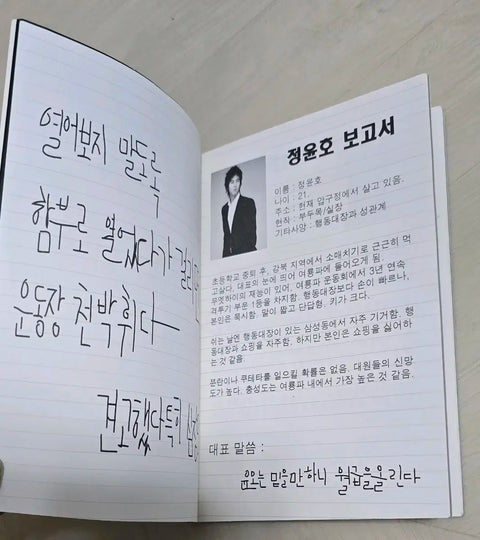 열어보지 말도록
함부로 열었다가 걸리면
운동장 천 박휘다ㅡ
견고했다 특히
정윤호 보고서
이름 : 정윤호
나이 : 21.
주소 : 현재 압구정에서 살고 있음.
현직 : 부두목/실장
기타사항 : 행동대장과 성관계
초등학교 중퇴 후, 강북 지역에서 소매치기로 근근히 먹
고살다, 대표의 눈에 띄어 여룡파에 들어오게 됨.
무엇하이의 재능이 있어, 여룡파 운동회에서 3년 연속
격투기 부문 1등을 차지함. 행동대장보다 손이 빠르나,
본인은 묵시함. 말이 짧고 단답형. 키가 크다.
쉬는 날엔 행동대장이 있는 삼성동에서 자주 기거함. 행
동대장과 쇼핑을 자주함. 하지만 본인은 쇼핑을 싫어하
는 것 같음.
분란이나 쿠테타를 일으킬 확률은 없음. 대원들의 신망
도가 높다. 충성도는 여룡파 내에서 가장 높은 것 같음.
대표 말씀 :
윤호는 믿을만하니 월급을 올린다